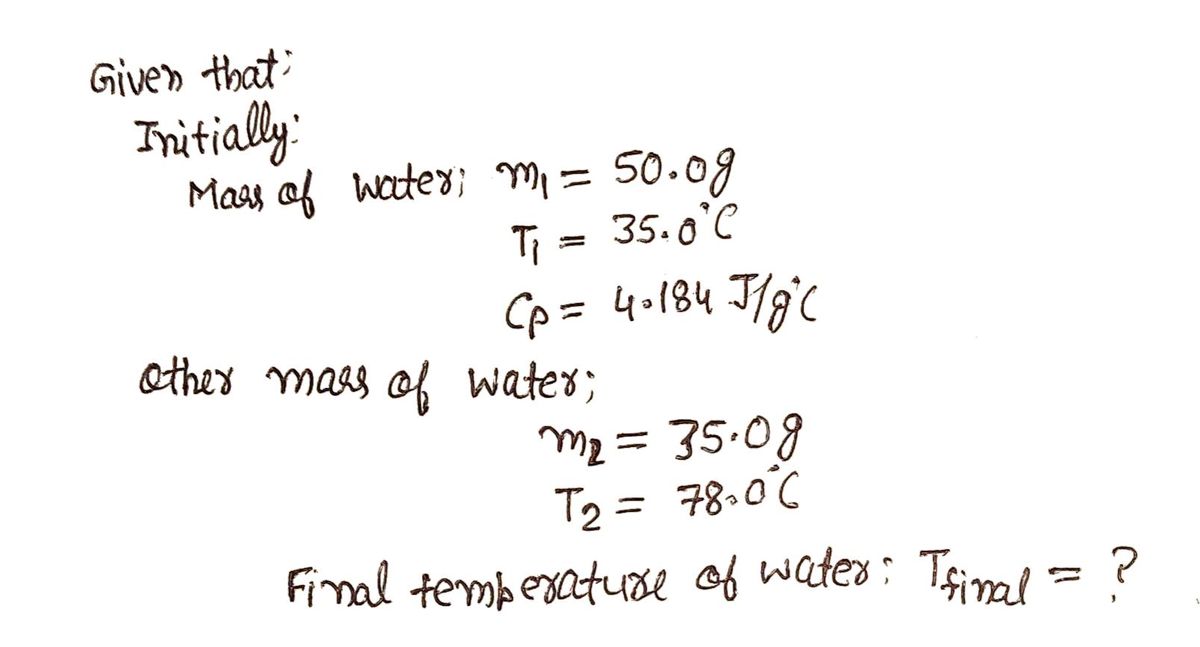 Given that;
Initially:
Mass of water; m₁ = 50.0g
T₁ = 35.0°C
Cp = 4.184 J/g°C
other mass of water;
m₂ = 35.0g
T₂ = 78.0°C
Final temperature of water: Tfinal = ?